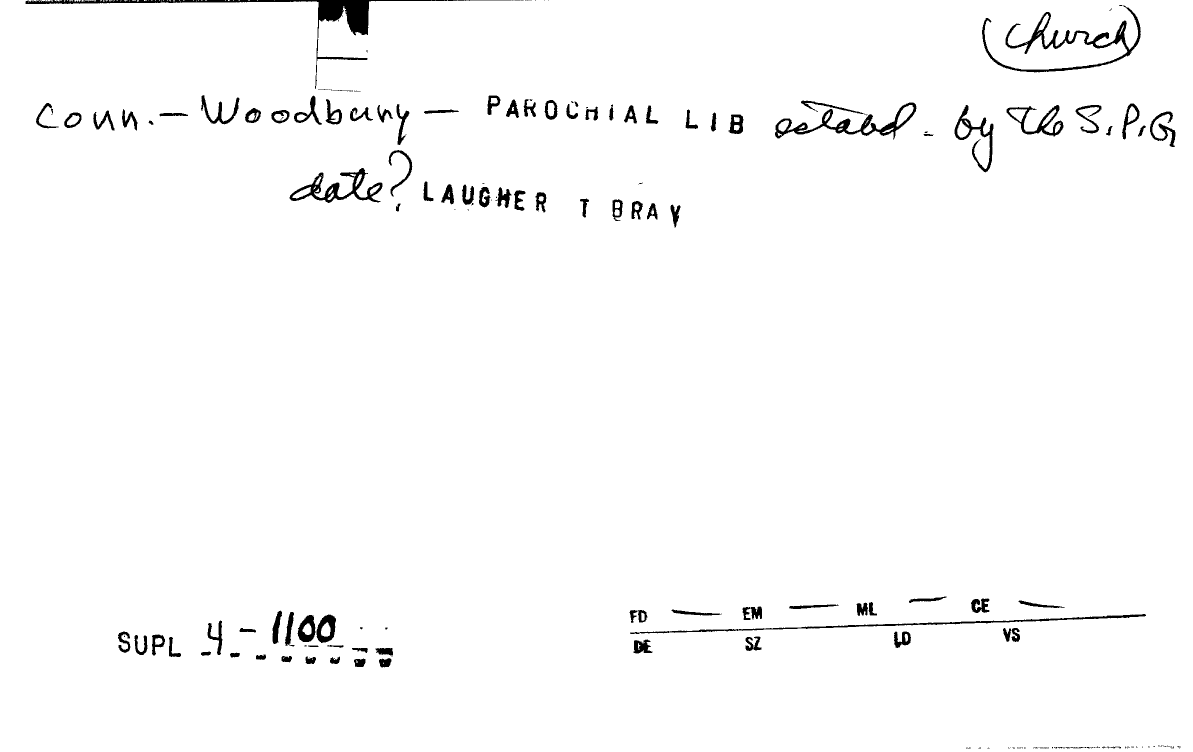 (Church)
Conn. — Woodbury — PAROCHIAL LIB estabd. by the S.P.G
date? LAUGHER T BRAY
FD — EM — ML — CE —
SUPL 4-1100
DE SZ LD VS